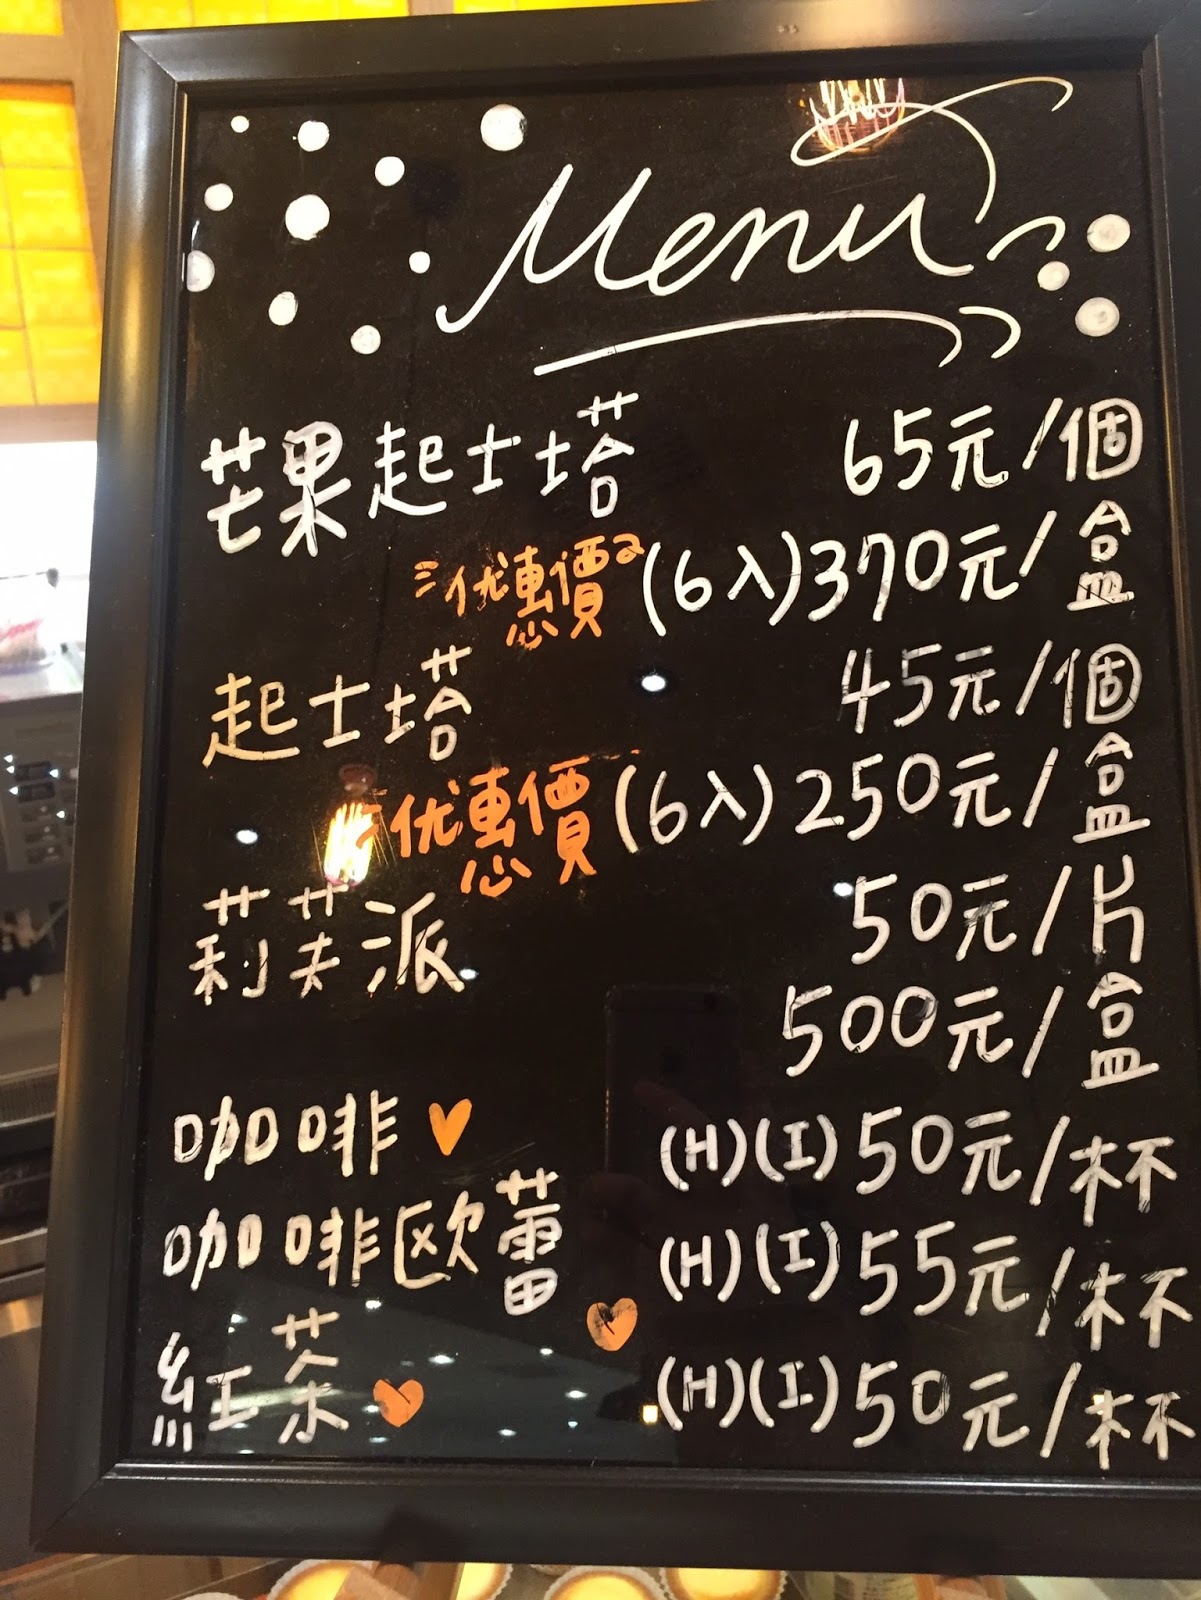 Menu
芒果起士塔 65元/個
优惠價 (6入)370元/盒
起士塔 45元/個
优惠價 (6入)250元/盒
莉芙派 50元/片
500元/盒
咖啡 (H)(I)50元/杯
咖啡歐蕾 (H)(I)55元/杯
紅茶 (H)(I)50元/杯